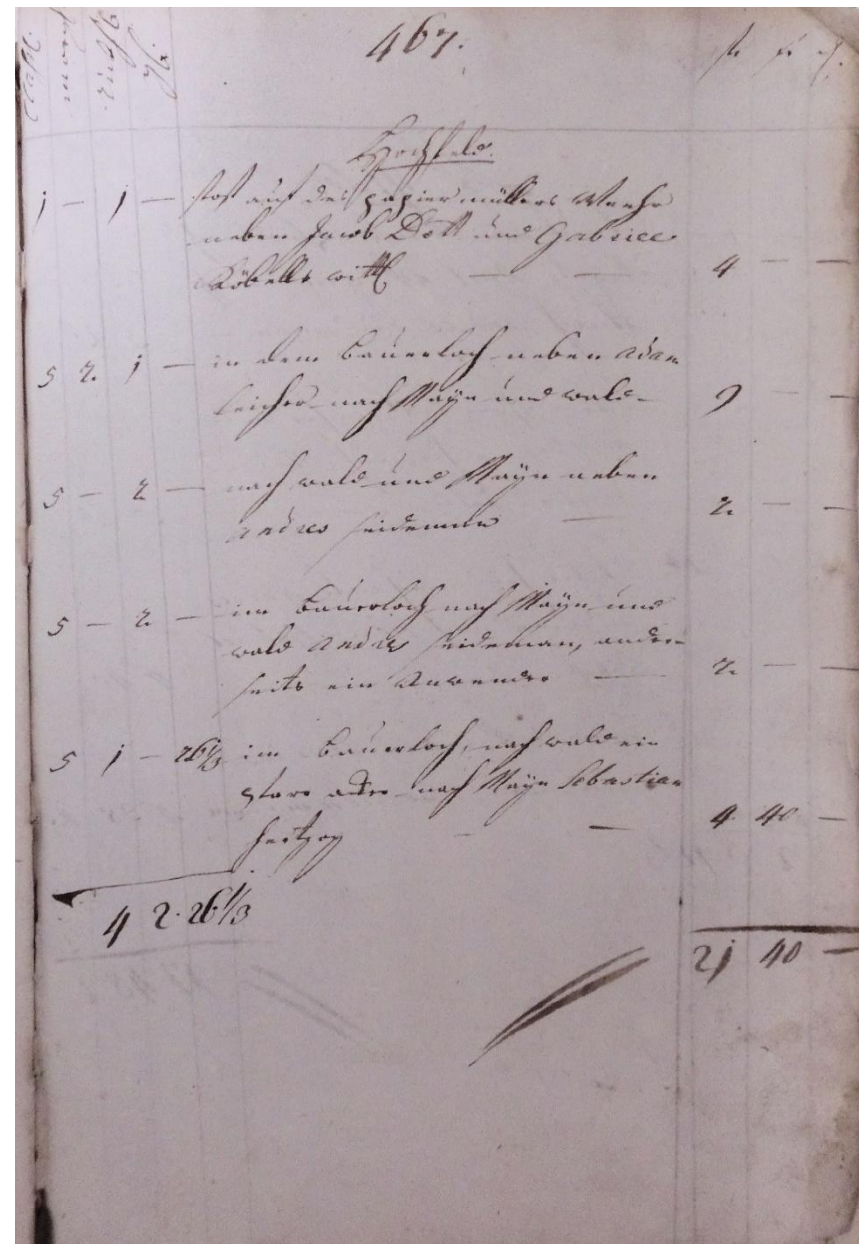 467.
fl. xr. ₰.
Hochfeld.
1 — 1 — stost auf des papiermüllers Wehr
neben Jacob Dott und Gabriel
Köbells witt. — — 4 — —
5 2. 1 — in dem bauerloch neben adam
leicher nach Mayn und wald 9 — —
5 — 2 — nach wald und Mayn neben
andres seideman — 2. — —
5 — 2. — im bauerloch nach Mayn und
wald andres seideman, ander-
seits ein Anwender — 2. — —
5 1 — 26 1/3 im bauerloch, nach wald ein
acker nach Mayn Sebastian
hertzog — — 4 40 —
4 2. 26 1/3
21 40 —